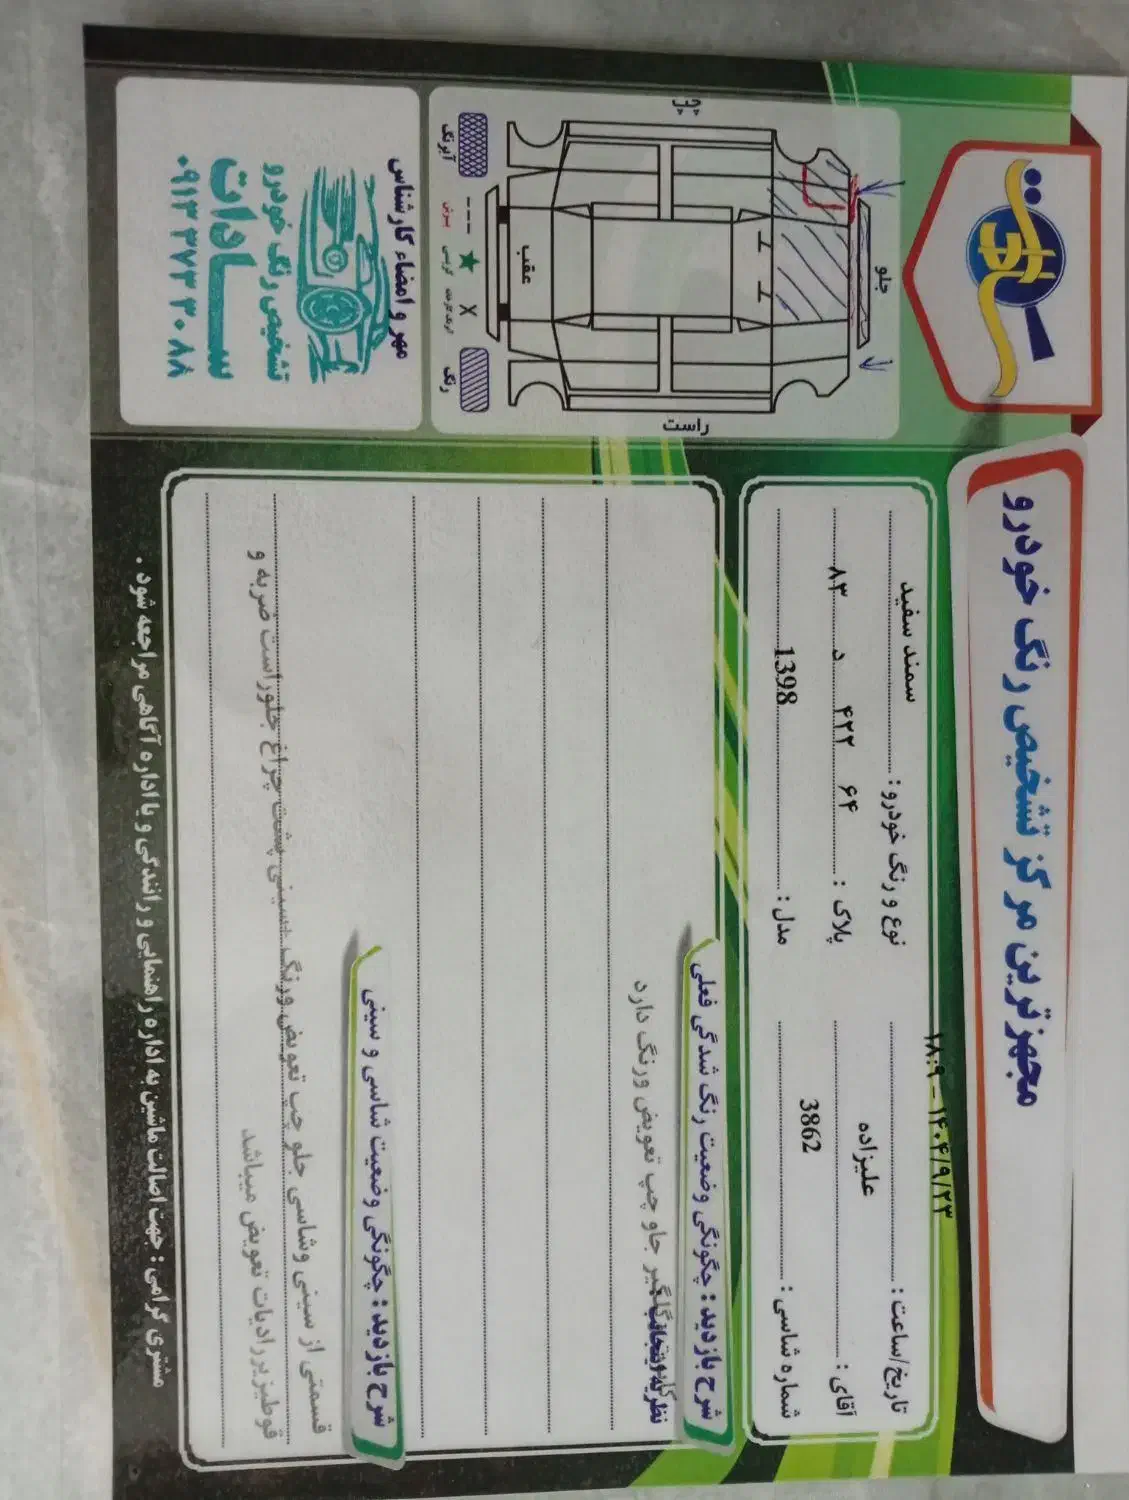 سادات
مجهزترین مرکز تشخیص رنگ خودرو
تاریخ/ساعت : ۱۴۰۴/۹/۲۳ – ۱۸:۹
نوع و رنگ خودرو : سمند سفید
آقای : علیزاده
پلاک : ۶۴ ۴۲۲ د ۸۳
شماره شاسی : 3862
مدل : 1398
جلو
چپ
راست
عقب
آبرنگ
رنگ
مهر و امضاء کارشناس
تشخیص رنگ خودرو
ســادات
۰۹۱۳ ۳۷۳ ۳۰ ۸۸
شرح بازدید : چگونگی وضعیت رنگ شدگی فعلی
گلگیر جلو چپ تعویض ورنگ دارد
شرح بازدید : چگونگی وضعیت شاسی و سینی
قسمتی از سینی وشاسی جلو چپ تعویض ورنگ .سینی پشت چراغ جلوراست ضربه و
قوطیزیررادیات تعویض میباشد
مشتری گرامی : جهت اصالت ماشین به اداره راهنمایی و رانندگی و یا اداره آگاهی مراجعه شود .